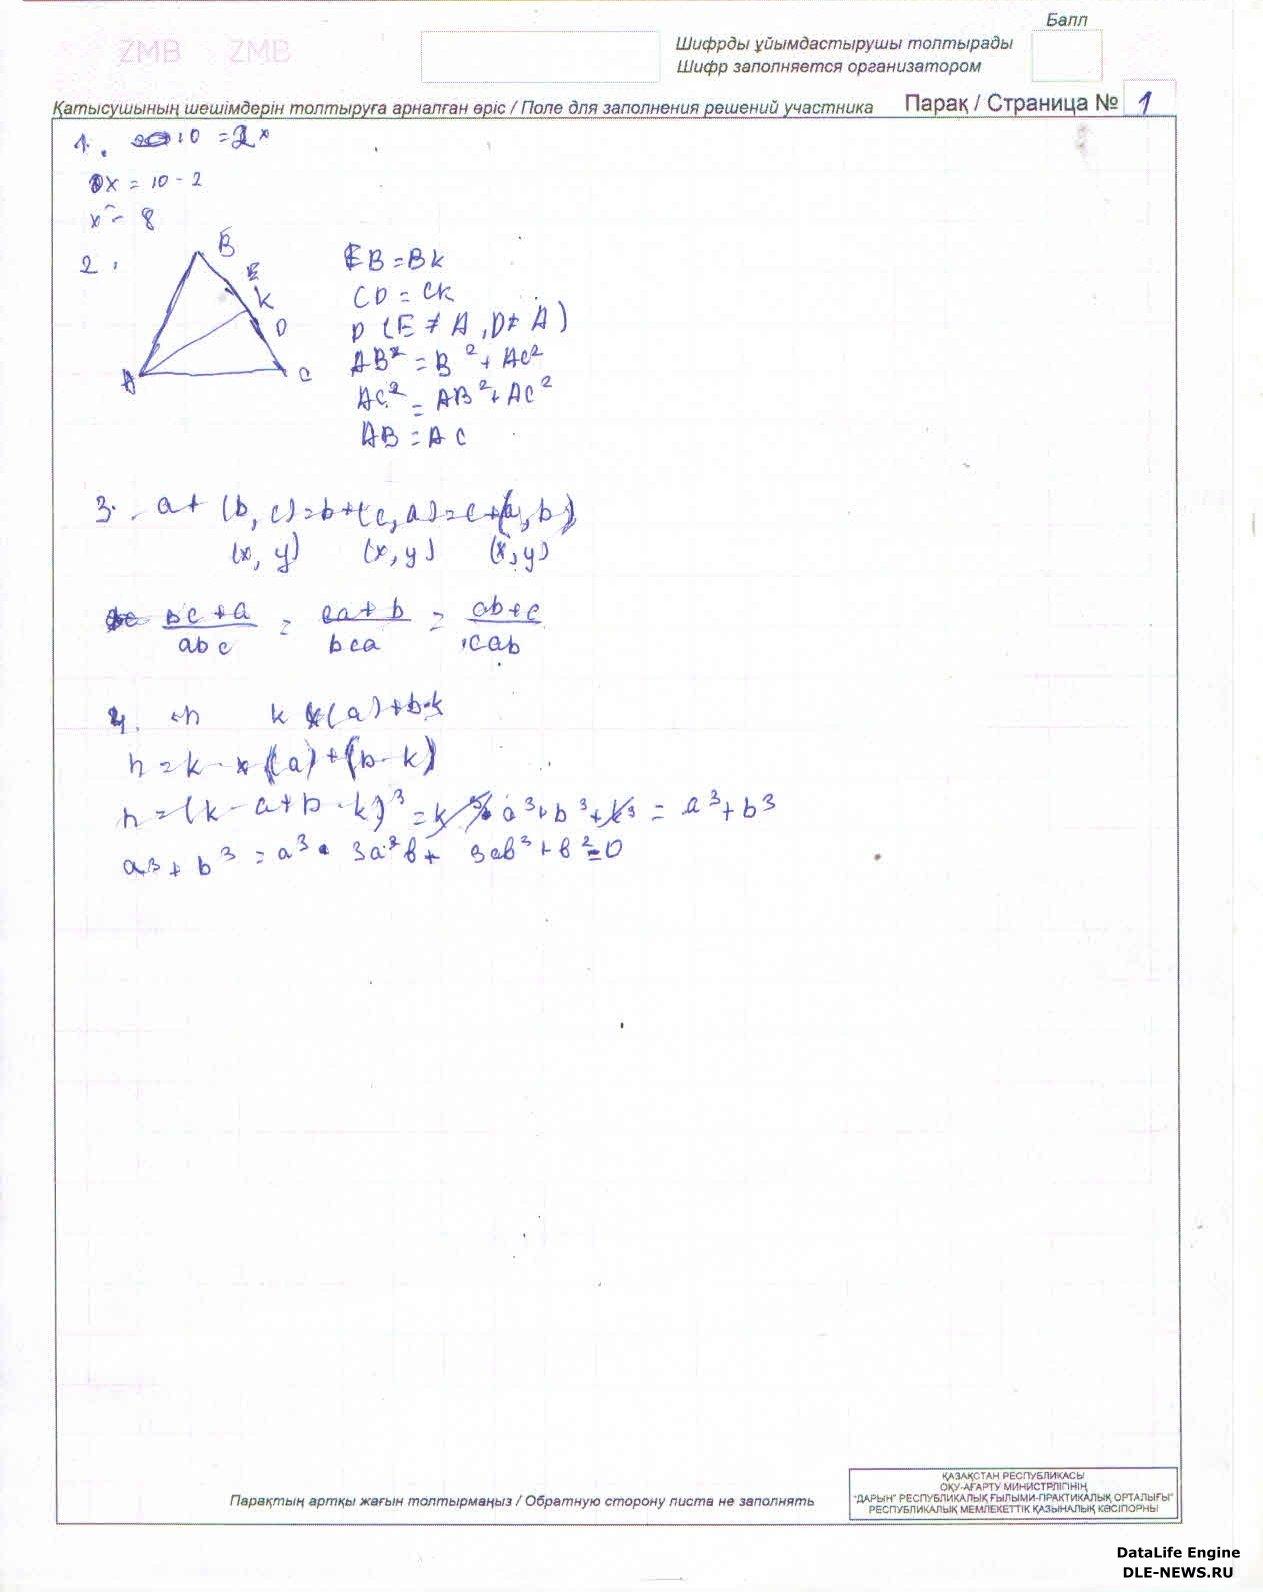 ZMB ZMB
Балл
Шифрды ұйымдастырушы толтырады
Шифр заполняется организатором
Қатысушының шешімдерін толтыруға арналған өріс / Поле для заполнения решений участника
Парақ / Страница № 1
1. 10 = 2x
x = 10 - 2
x = 8
2.
B
E
K
D
A
C
EB = BK
CD = CK
D (E ≠ A, D ≠ A)
AB² = B² + AC²
AC² = AB² + AC²
AB = AC
3. a + (b, c) = b + (c, a) = c + (a, b)
(x, y) (x, y) (x, y)
bc + a / abc = ca + b / bca = ab + c / cab
4. n k (a) + b - k
n = k - (a) + (b - k)
n = (k - a + b - k)³ = a³ + b³ + k³ = a³ + b³
a³ + b³ = a³ 3a²b + 3ab³ + b² = 0
Парақтың артқы жағын толтырмаңыз / Обратную сторону листа не заполнять
ҚАЗАҚСТАН РЕСПУБЛИКАСЫ
ОҚУ-АҒАРТУ МИНИСТРЛІГІНІҢ
"ДАРЫН" РЕСПУБЛИКАЛЫҚ ҒЫЛЫМИ-ПРАКТИКАЛЫҚ ОРТАЛЫҒЫ"
РЕСПУБЛИКАЛЫҚ МЕМЛЕКЕТТІК ҚАЗЫНАЛЫҚ КӘСІПОРНЫ
DataLife Engine
DLE-NEWS.RU